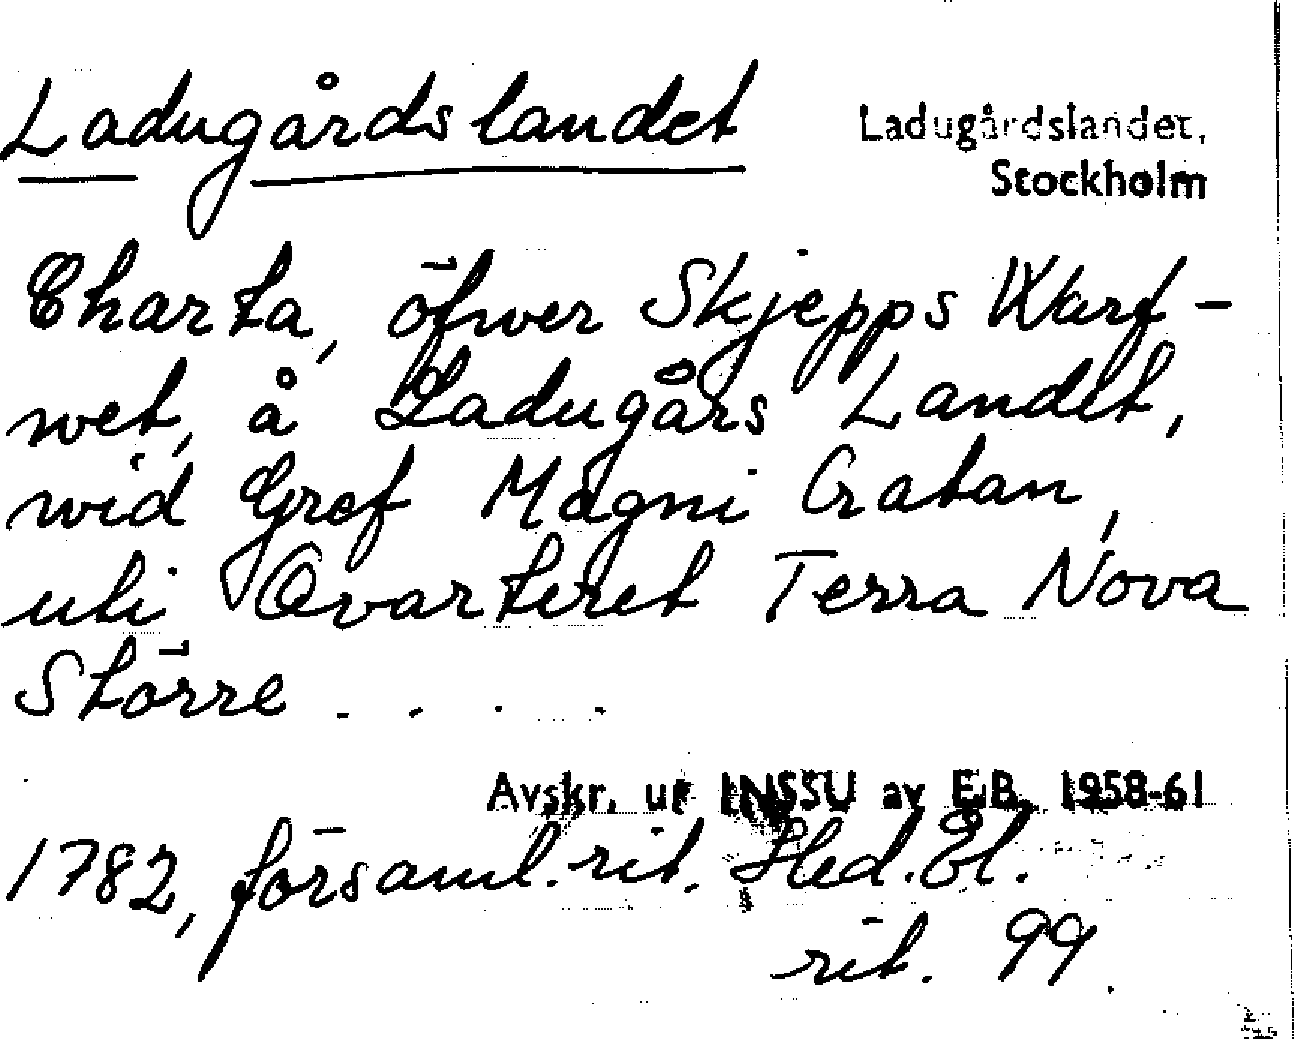 Ladugårdslandet
Ladugårdslandet,
Stockholm
Charta, öfwer Skjepps Warf-
wet, å Ladugårs Landet,
wid Gref Magni Gratan,
uti Qvarteret Terra Nova
Större . . . .
Avskr. ur INSSU av E.B. 1958-61
1782, församl. rit. Hed. El.
rit. 99.